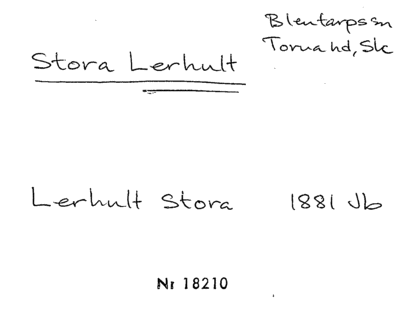 Blentarps sn
Torna hd, Sk
Stora Lerhult
Lerhult Stora 1881 Jb
Nr 18210